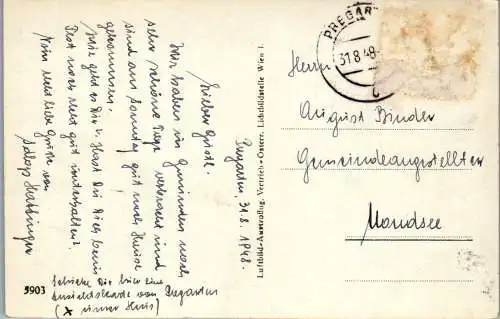 Pregarten, 31.8.1948.
Lieber Gustl.
Wir haben in Gmunden noch
sehr schöne Tage verbracht und
sind am Sonntag gut nach Hause
gekommen.
Wie geht es Dir? Hast Du Dich beim
Fest noch recht gut unterhalten?
Nun recht liebe Grüße von
Schicke Dir hier eine
Ansichtskarte von Pregarten
(x unser Haus)
5903
Luftbild-Ausnützung, Vertrieb: Österr. Lichtbildstelle, Wien I.
PREGAR
31.8.48
Herrn
August Binder
Gemeindeangestellter
Mondsee